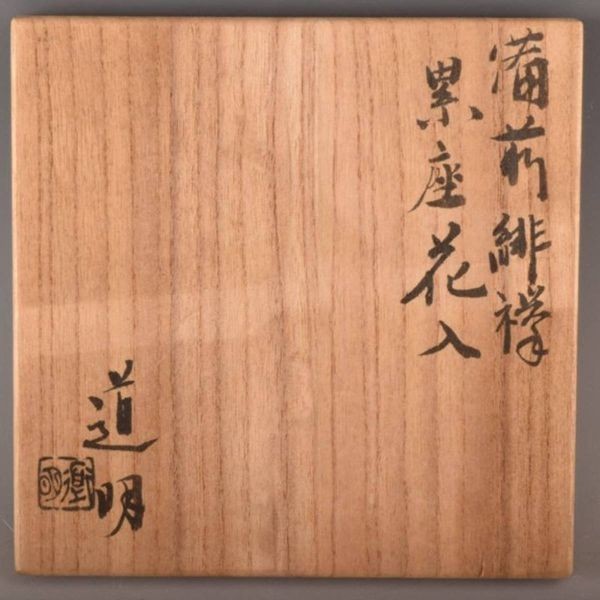 備前緋襷
累座花入
道明